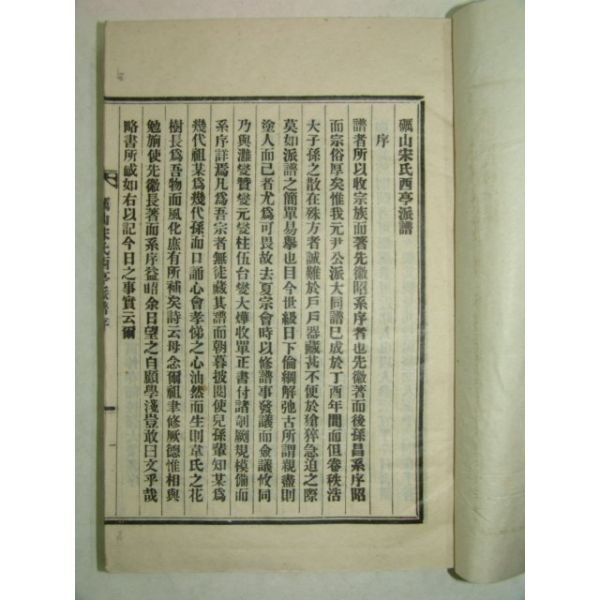 礪山宋氏西亭派譜
序
譜者所以收宗族而著先徽昭系序者也先徽著而後孫昌系序昭
而宗俗厚矣惟我元尹公派大同譜已成於丁酉年間而但卷秩浩
大子孫之散在殊方者誠難於戶戶器藏甚不便於搶猝急迫之際
莫如派譜之簡單易擧也目今世級日下倫綱解弛古所謂親盡則
塗人而已者尤爲可畏故去夏宗會時以修譜事發議而僉議攸同
乃與濰燮贊燮元燮柱伍台燮大燁收單正書付諸剞劂規模備而
系序詳焉凡爲吾宗者無徒藏其譜而朝暮披閱使兒孫輩知某爲
幾代祖某爲幾代孫而口誦心會孝悌之心油然而生則韋氏之花
樹長爲吾物而風化庶有所補矣詩云毋念爾祖聿修厥德惟相與
勉旃使先徽長著而系序益昭余日望之自顧學淺豈敢曰文乎哉
略書所感如右以記今日之事實云爾
礪山宋氏西亭派譜序